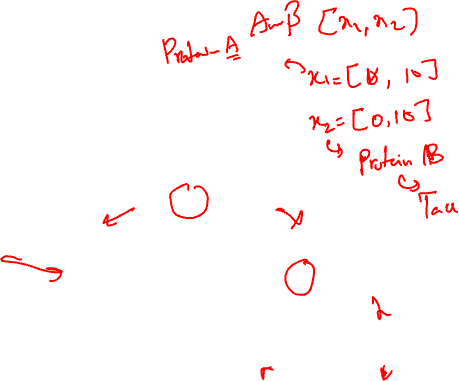 Protein A A-β [x1, x2]
x1=[0, 10]
x2=[0,10]
Protein B
Tau